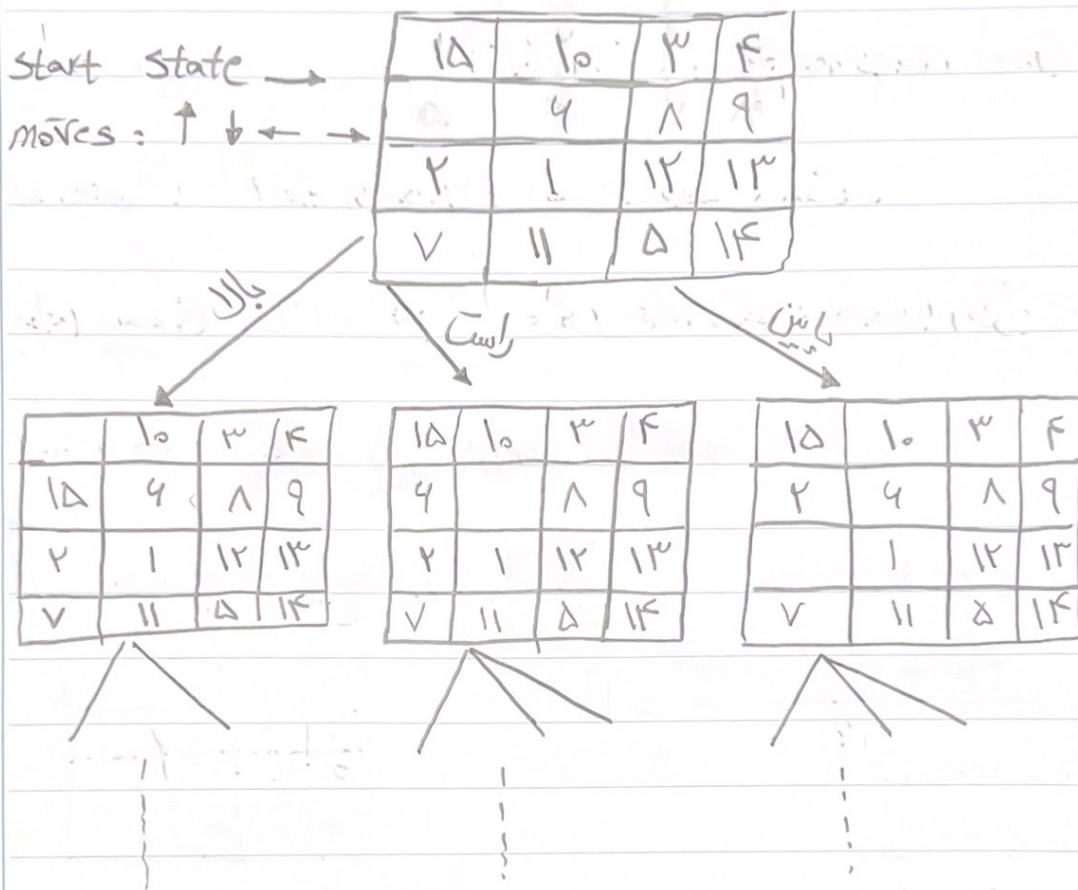 start state →
moves: ↑ ↓ ← →
۱۵ ۱۰ ۳ ۴
۶ ۸ ۹
۲ ۱ ۱۲ ۱۳
۷ ۱۱ ۵ ۱۴
بالا راست پایین
۱۰ ۳ ۴
۱۵ ۶ ۸ ۹
۲ ۱ ۱۲ ۱۳
۷ ۱۱ ۵ ۱۴
۱۵ ۱۰ ۳ ۴
۶ ۸ ۹
۲ ۱ ۱۲ ۱۳
۷ ۱۱ ۵ ۱۴
۱۵ ۱۰ ۳ ۴
۲ ۶ ۸ ۹
۱ ۱۲ ۱۳
۷ ۱۱ ۵ ۱۴